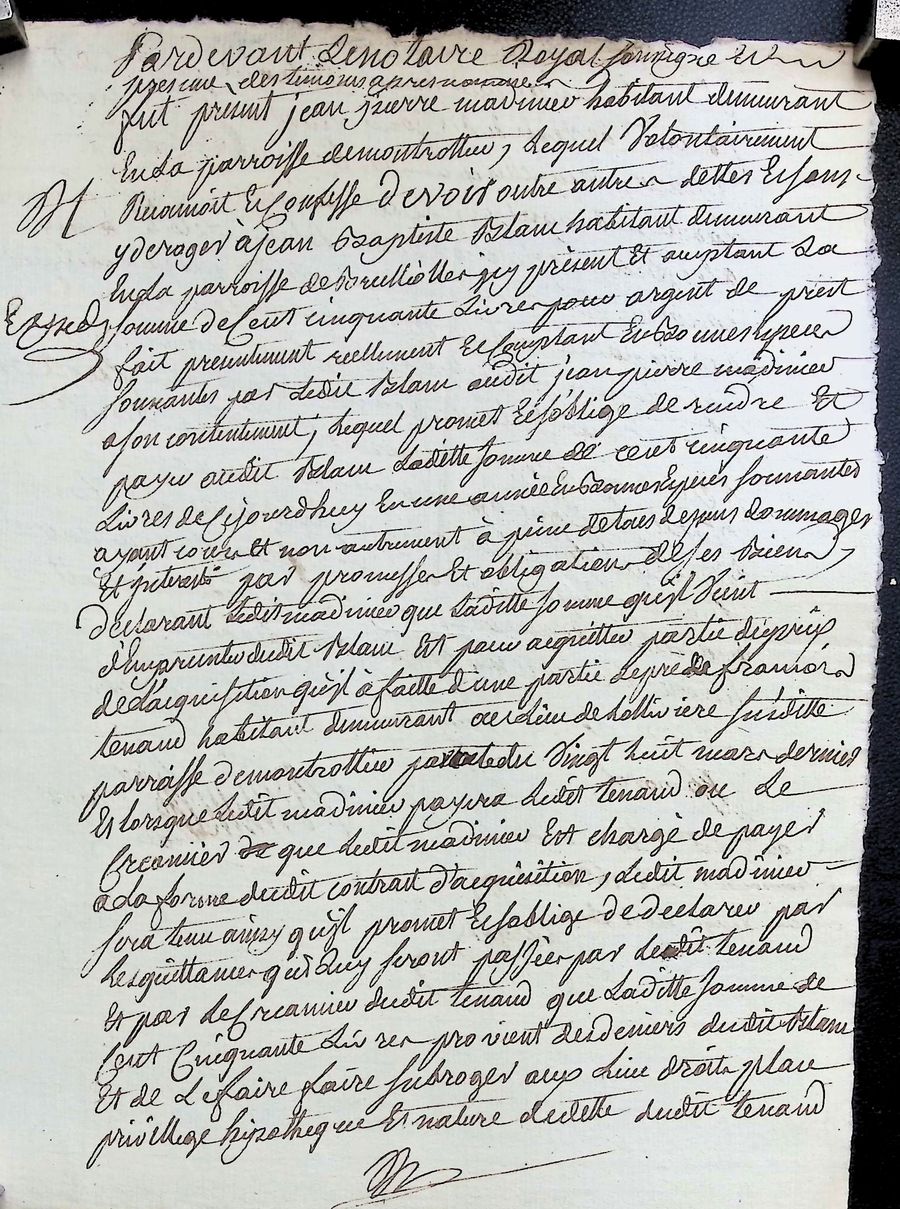 Pardevant Le notaire Royal soussigné Et En
presence des temoins apres nommes
fut présent jean pierre madinier habitant demeurant
En La parroisse de montrottier, Lequel Volontairement
Reconnoit Et Confesse devoir outre autres dettes Et sans
y deroger à jean Baptiste Blanc habitant demeurant
En La parroisse de Brulliolles icy présent Et aceptant La
somme de Cent cinquante Livres pour argent de prest
fait presentement reellement Et Comptant En Bonnes especes
sonnantes par Ledit Blanc audit jean pierre madinier
a son contentement, Lequel promet Et soblige de rendre Et
payer audit Blanc Laditte somme de cent cinquante
Livres de Cejourdhuy En une année En Bonnes Especes sonnantes
ayant cours Et non autrement à peine de tous depens dommages
Et interests par promesses Et obligations de ses Biens
declarant Ledit madinier que Laditte somme qu'il Vient
d'Emprunter dudit Blanc Est pour acquitter partie du prix
de L'acquisition qu'il à faitte d'une partie de pré de francois
tenaud habitant demeurant au Lieu de Lolliviere susditte
parroisse de montrottier par acte du Vingt huit mars dernier
Et Lorsque Ledit madinier payera Ledit tenaud ou Le
Creancier que Ledit madinier Est chargé de payer
a La forme dudit contrait d'acquisition, Ledit madinier
sera tenu ainsy qu'il promet Et soblige de declarer par
Les quittances qui Luy seront passées par Ledit tenaud
Et par Le Creancier dudit tenaud que Laditte somme de
Cent Cinquante Livres provient des deniers dudit Blanc
Et de Le faire faire subroger aux Lieu droits place
privillege hypotheque Et nature de dette dudit tenaud